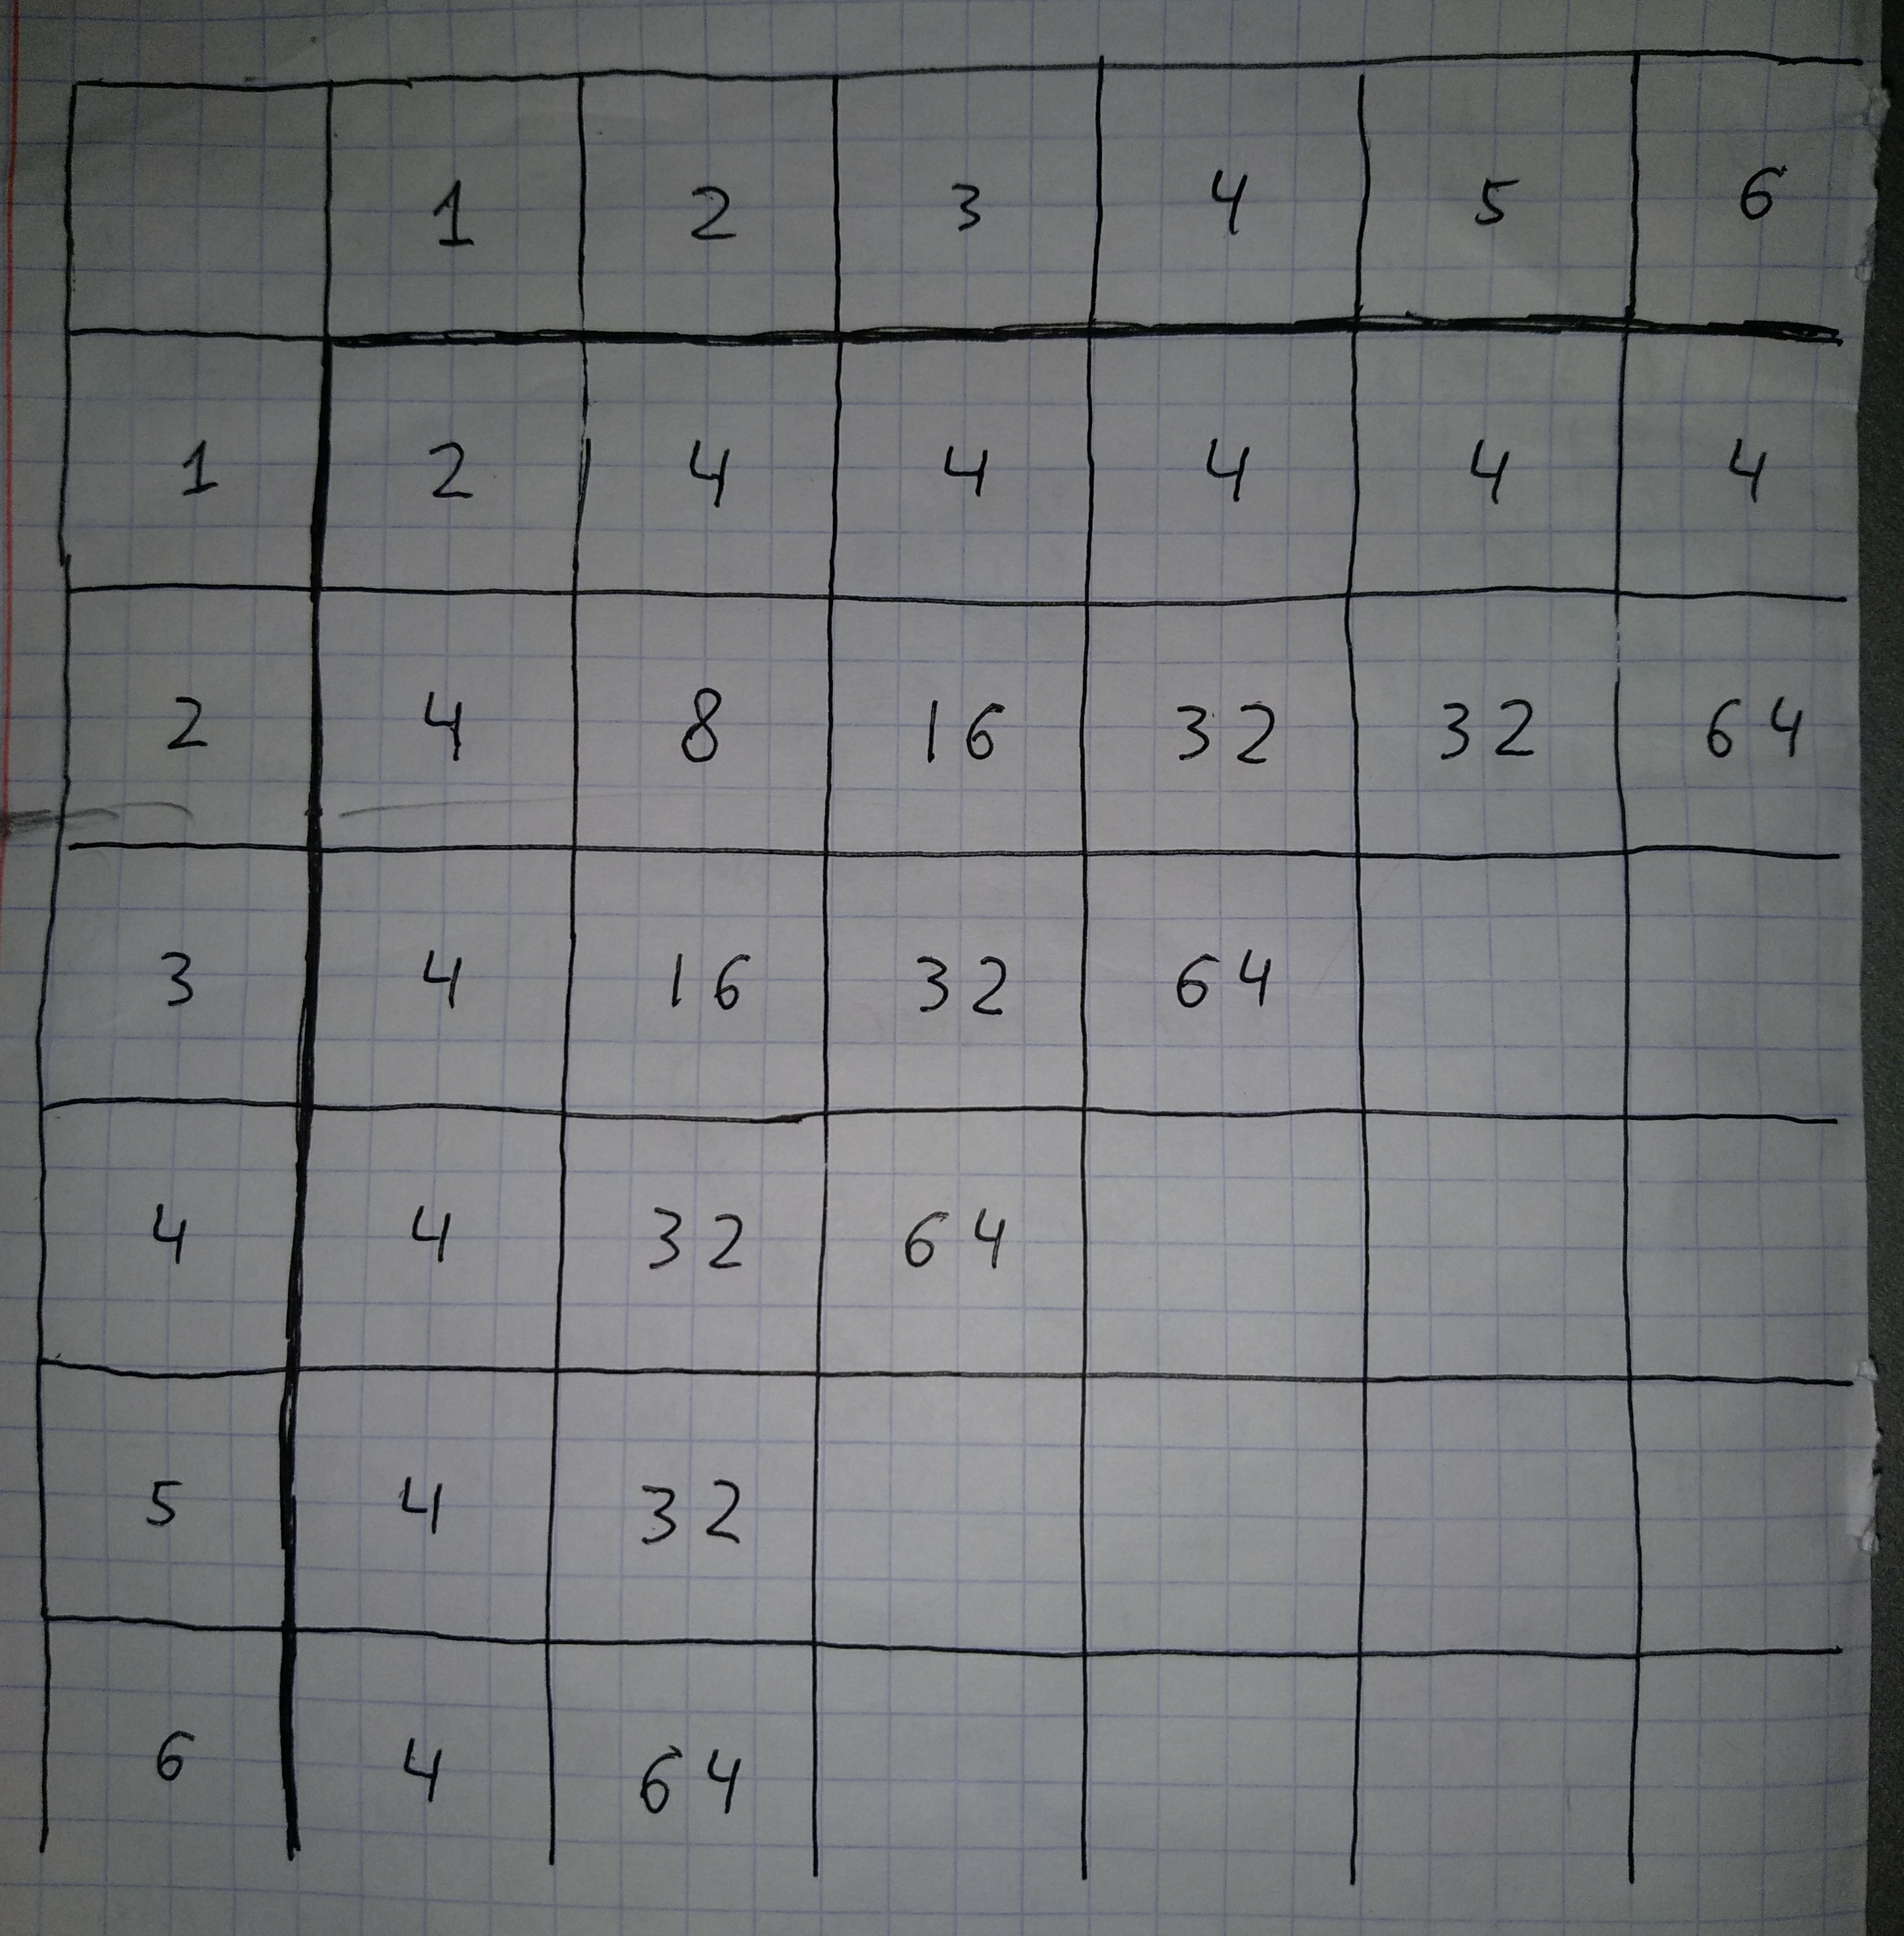 1 2 3 4 5 6
1 2 4 4 4 4 4
2 4 8 16 32 32 64
3 4 16 32 64
4 4 32 64
5 4 32
6 4 64